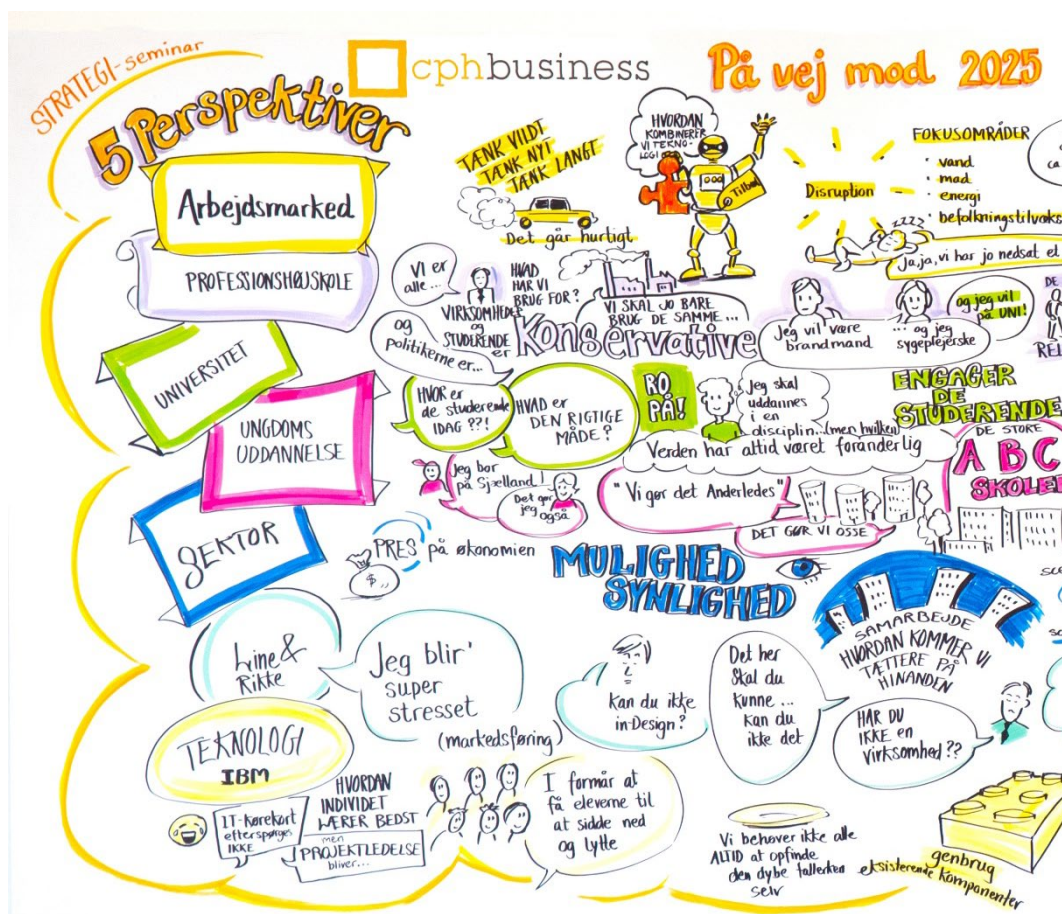 STRATEGI-seminar
cphbusiness
På vej mod 2025
5 Perspektiver
Arbejdsmarked
PROFESSIONSHØJSKOLE
UNIVERSITET
UNGDOMS
UDDANNELSE
SEKTOR
TÆNK VILDT
TÆNK NYT
TÆNK LANGT
Det går hurtigt
HVORDAN
KOMBINERER
VI TEKNO-
LOGI
Tilbud
Disruption
FOKUSOMRÅDER
· vand
· mad
· energi
· befolkningstilvæks
ZZZZ
Ja,ja, vi har jo nedsat et
Vi er
alle...
VIRKSOMHEDER
og
STUDERENDE
er
HVAD
HAR VI
BRUG FOR?
VI SKAL JO BARE
BRUG DE SAMME...
Konservative
og
politikerne er...
Jeg vil være
brandmand
... og jeg
sygeplejerske
og jeg vil
på UNI!
DE
HVOR er
de studerende
IDAG ??!
HVAD er
DEN RIGTIGE
MÅDE?
RO
PÅ!
Jeg skal
uddannes
i en
disciplin...(men hvilken)
ENGAGER
DE
STUDERENDE
Verden har altid været foranderlig
DE STORE
A B C
SKOLER
Jeg bor
på Sjælland!
Det gør
jeg også
"Vi gør det Anderledes"
DET GØR VI OSSE
PRES på økonomien
$
MULIGHED
SYNLIGHED
SAMARBEJDE
HVORDAN KOMMER VI
TÆTTERE PÅ
HINANDEN
Line &
Rikke
Jeg blir'
super
stresset
(markedsføring)
Kan du ikke
in-Design?
Det her
skal du
kunne ...
kan du
ikke det
HAR DU
IKKE en
virksomhed??
TEKNOLOGI
IBM
IT-kørekort
efterspørges
IKKE
HVORDAN
INDIVIDET
LÆRER BEDST
men
PROJEKTLEDELSE
bliver...
I formår at
få eleverne til
at sidde ned
og lytte
Vi behøver ikke alle
ALTID at opfinde
den dybe tallerken
selv
genbrug
eksisterende komponenter